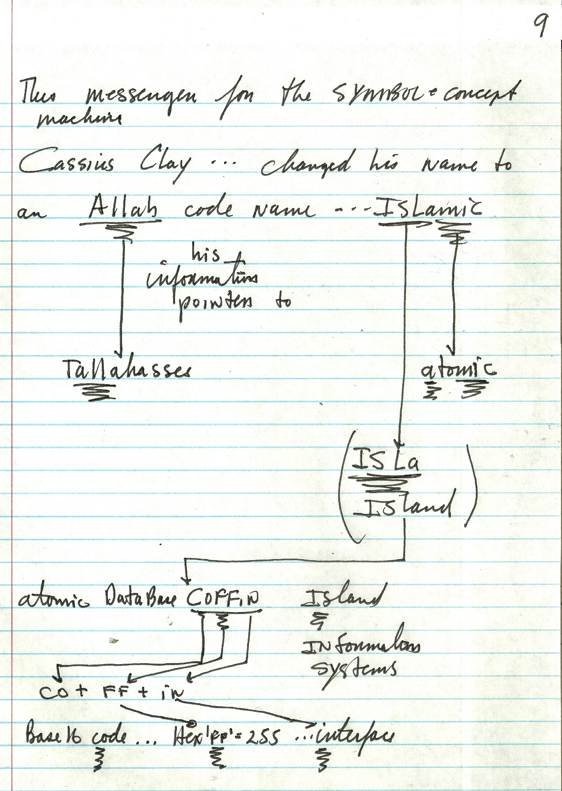 9
This messenger for the SYMBOL + concept
machine
Cassius Clay ... changed his name to
an Allah code name --- ISLamic
his
information
pointers to
Tallahassee
atomic
ISLa
ISland
atomic DataBase COFFiN ISland
INformations
systems
CO + FF + iN
Base 16 code ... Hex 'FF' = 255 ... interface